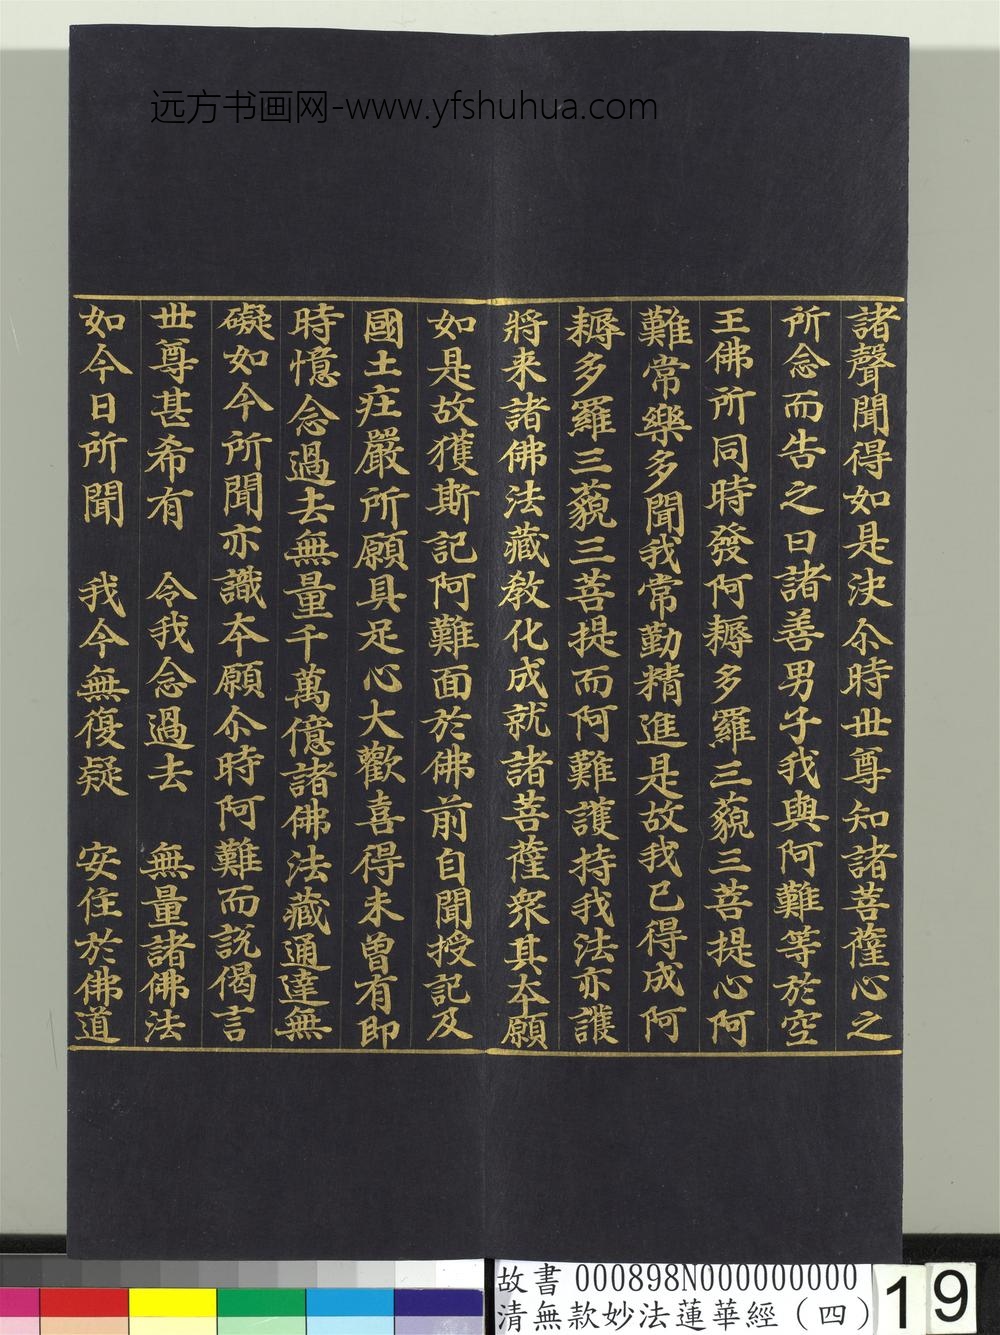 远方书画网-www.yfshuhua.com
諸聲聞得如是决尒時世尊知諸菩薩心之
所念而告之曰諸善男子我與阿難等於空
王佛所同時發阿耨多羅三藐三菩提心阿
難常樂多聞我常勤精進是故我已得成阿
耨多羅三藐三菩提而阿難護持我法亦護
將来諸佛法藏教化成就諸菩薩衆其夲願
如是故獲斯記阿難面於佛前自聞授記及
國土庄嚴所願具足心大歡喜得未曾有即
時憶念過去無量千萬億諸佛法藏通達無
礙如今所聞亦識夲願尒時阿難而說偈言
世尊甚希有　令我念過去　無量諸佛法
如今日所聞　我今無復疑　安住於佛道
故書 000898N000000000
清無款妙法蓮華經（四）
19